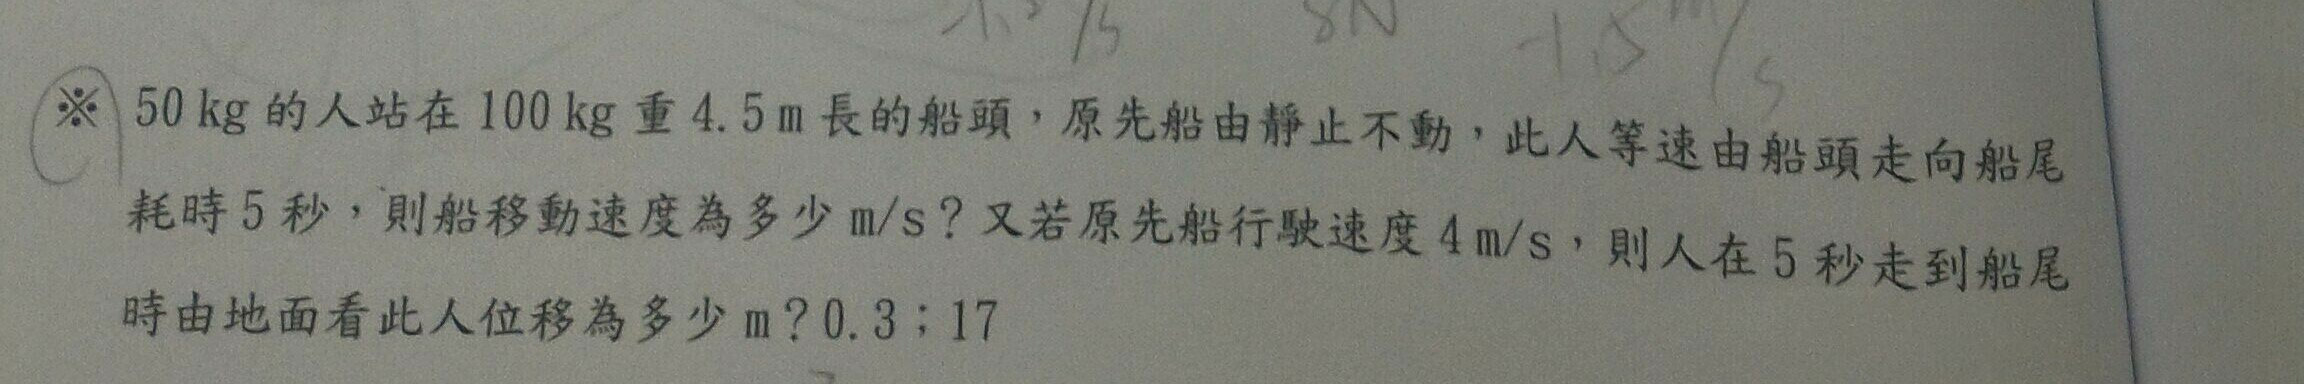 1.5 m/s
※ 50 kg 的人站在 100 kg 重 4.5 m 長的船頭，原先船由靜止不動，此人等速由船頭走向船尾
耗時 5 秒，則船移動速度為多少 m/s？又若原先船行駛速度 4 m/s，則人在 5 秒走到船尾
時由地面看此人位移為多少 m？0.3；17